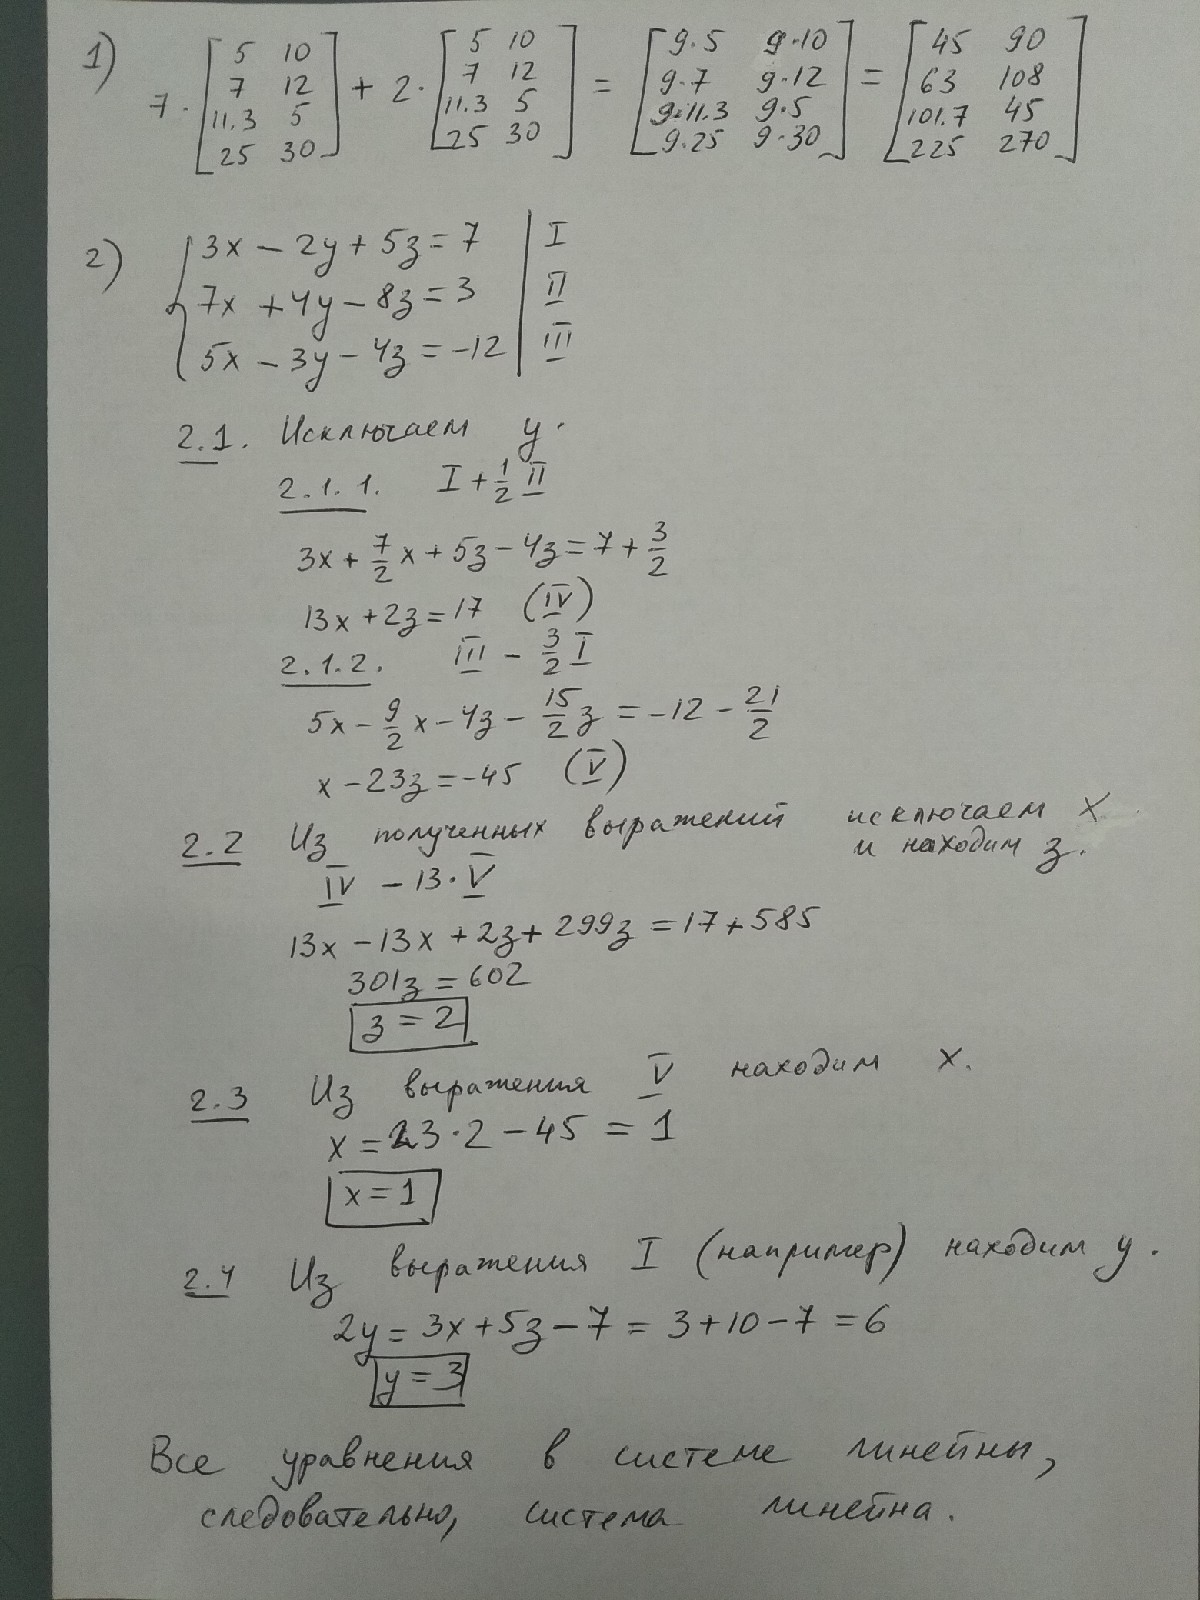 1) 7·[5 10; 7 12; 11.3 5; 25 30] + 2·[5 10; 7 12; 11.3 5; 25 30] = [9·5 9·10; 9·7 9·12; 9·11.3 9·5; 9·25 9·30] = [45 90; 63 108; 101.7 45; 225 270]
2) { 3x − 2y + 5z = 7 | I
7x + 4y − 8z = 3 | II
5x − 3y − 4z = −12 | III
2.1. Исключаем y.
2.1.1. I + 1/2 II
3x + 7/2 x + 5z − 4z = 7 + 3/2
13x + 2z = 17 (IV)
2.1.2. III − 3/2 I
5x − 9/2 x − 4z − 15/2 z = −12 − 21/2
x − 23z = −45 (V)
2.2 Из полученных выражений исключаем x
и находим z.
IV − 13·V
13x − 13x + 2z + 299z = 17 + 585
301z = 602
z = 2
2.3 Из выражения V находим x.
x = 23·2 − 45 = 1
x = 1
2.4 Из выражения I (например) находим y.
2y = 3x + 5z − 7 = 3 + 10 − 7 = 6
y = 3
Все уравнения в системе линейны,
следовательно, система линейна.